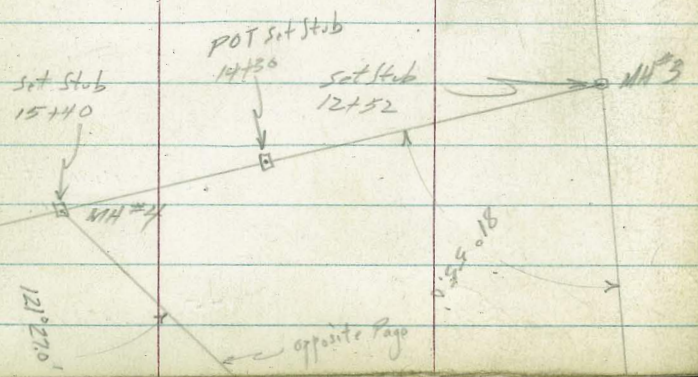 POT Set Stub
14+30
Set Stub
15+40
Set Stub
12+52
MH #3
MH #4
81° 44.0'
121°27.0'
opposite Page